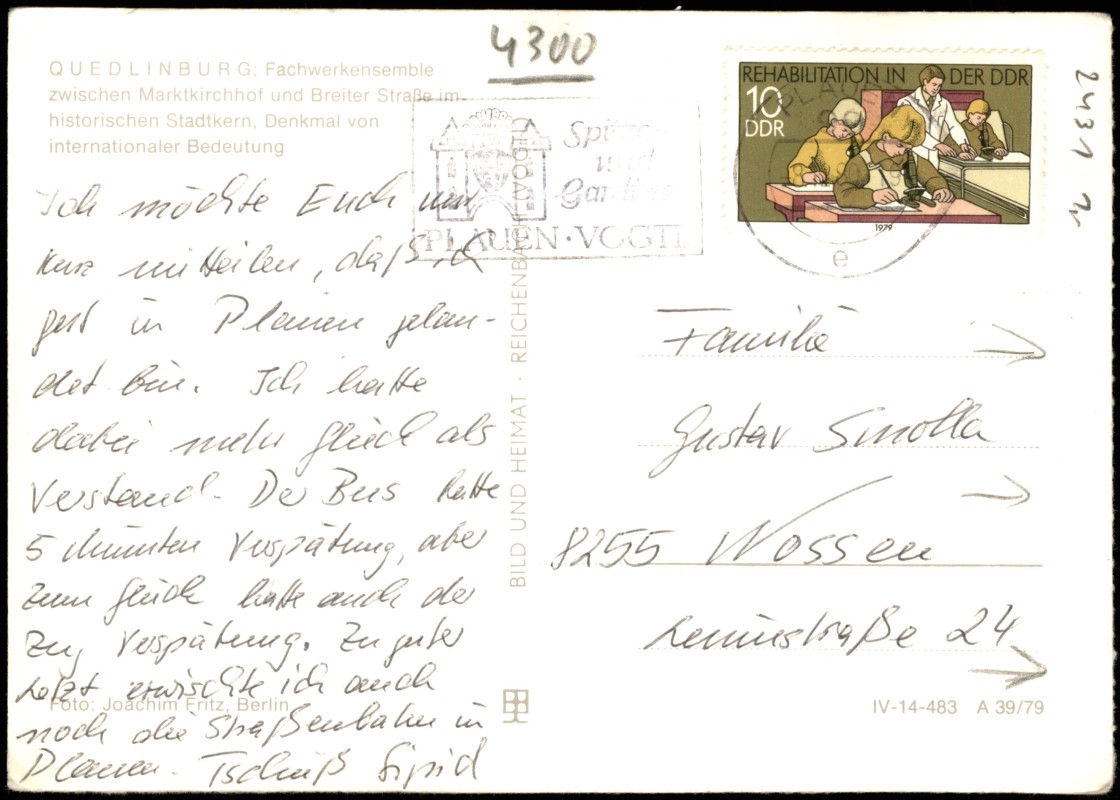 4300
QUEDLINBURG; Fachwerkensemble
zwischen Marktkirchhof und Breiter Straße im
historischen Stadtkern, Denkmal von
internationaler Bedeutung
REHABILITATION IN DER DDR
10
DDR
1979
PLAUEN
e
Spitzen
und
Gardinen
PLAUEN · VOGTL
2431
Ich möchte Euch nur
kurz mitteilen, daß ich
gut in Plauen gelan-
det bin. Ich hatte
dabei mehr Glück als
Verstand. Der Bus hatte
5 Minuten Verspätung, aber
zum Glück hatte auch der
Zug Verspätung. Zu guter
Letzt erwischte ich auch
noch die Straßenbahn in
Plauen. Tschüß Sigrid
BILD UND HEIMAT · REICHENBACH (VOGTL)
Familie
Gustav Smolla
8255 Nossen
Leninstraße 24
Foto: Joachim Fritz, Berlin
IV-14-483 A 39/79